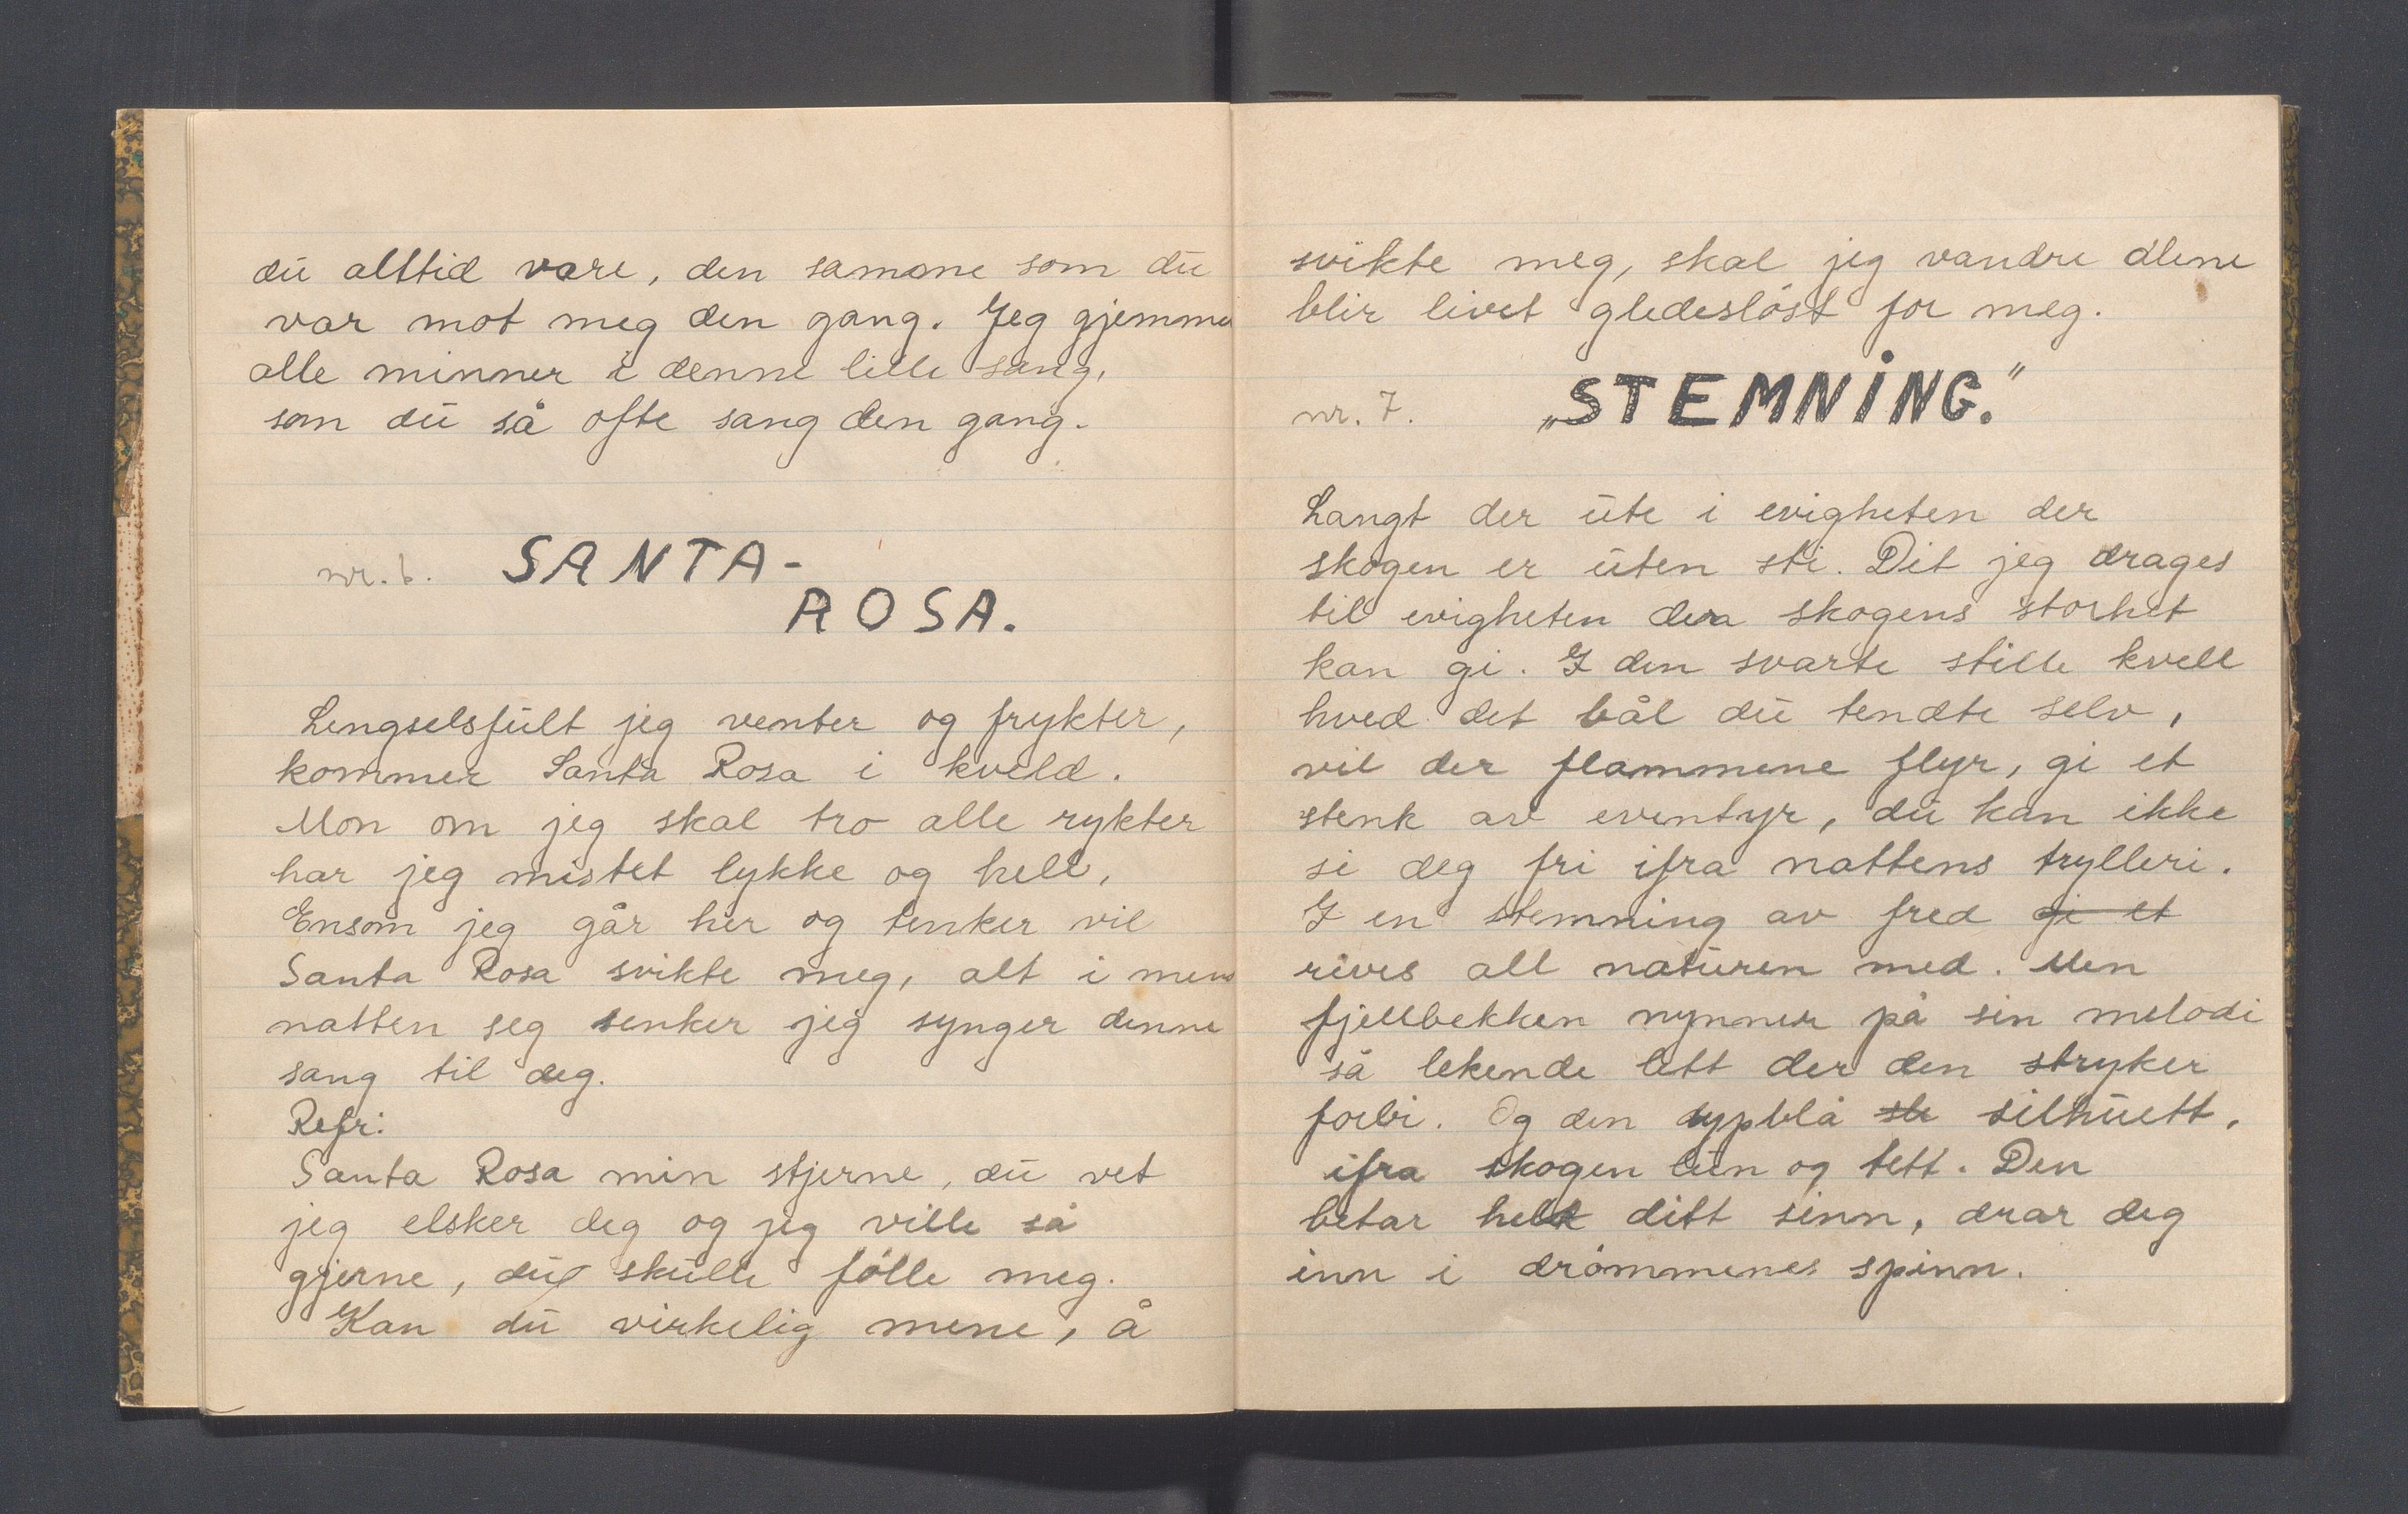 du alltid vare, den samone som du
var mot meg den gang. Jeg gjemmer
alle minner i denne lille sang,
som du så ofte sang den gang.
nr. 6. SANTA-
ROSA.
Lengselsfult jeg venter og frykter,
kommer Santa Rosa i kveld.
Mon om jeg skal tro alle rykter
har jeg mistet lykke og hell,
Ensom jeg går her og tenker vil
Santa Rosa svikte meg, alt i mens
natten seg senker jeg synger denne
sang til deg.
Refr:
Santa Rosa min stjerne, du vet
jeg elsker deg og jeg ville så
gjerne, du skulle følle meg.
Kan du virkelig mene, å
svikte meg, skal jeg vandre alene
blir livet gledesløst for meg.
nr. 7. „STEMNING."
Langt der ute i evigheten der
skogen er uten sti. Dit jeg drages
til evigheten der skogens storhet
kan gi. I den svarte stille kvell
hved det bål du tendte selv,
vil der flammene flyr, gi et
stenk av eventyr, du kan ikke
si deg fri ifra nattens trylleri.
I en stemning av fred gi et
rives all naturen med. Men
fjellbekken nynner på sin melodi
så lekende lett der den stryker
forbi. Og den dypblå sle silhuett,
ifra skogen lun og tett. Den
betar helt ditt sinn, drar deg
inn i drømmenes spinn.